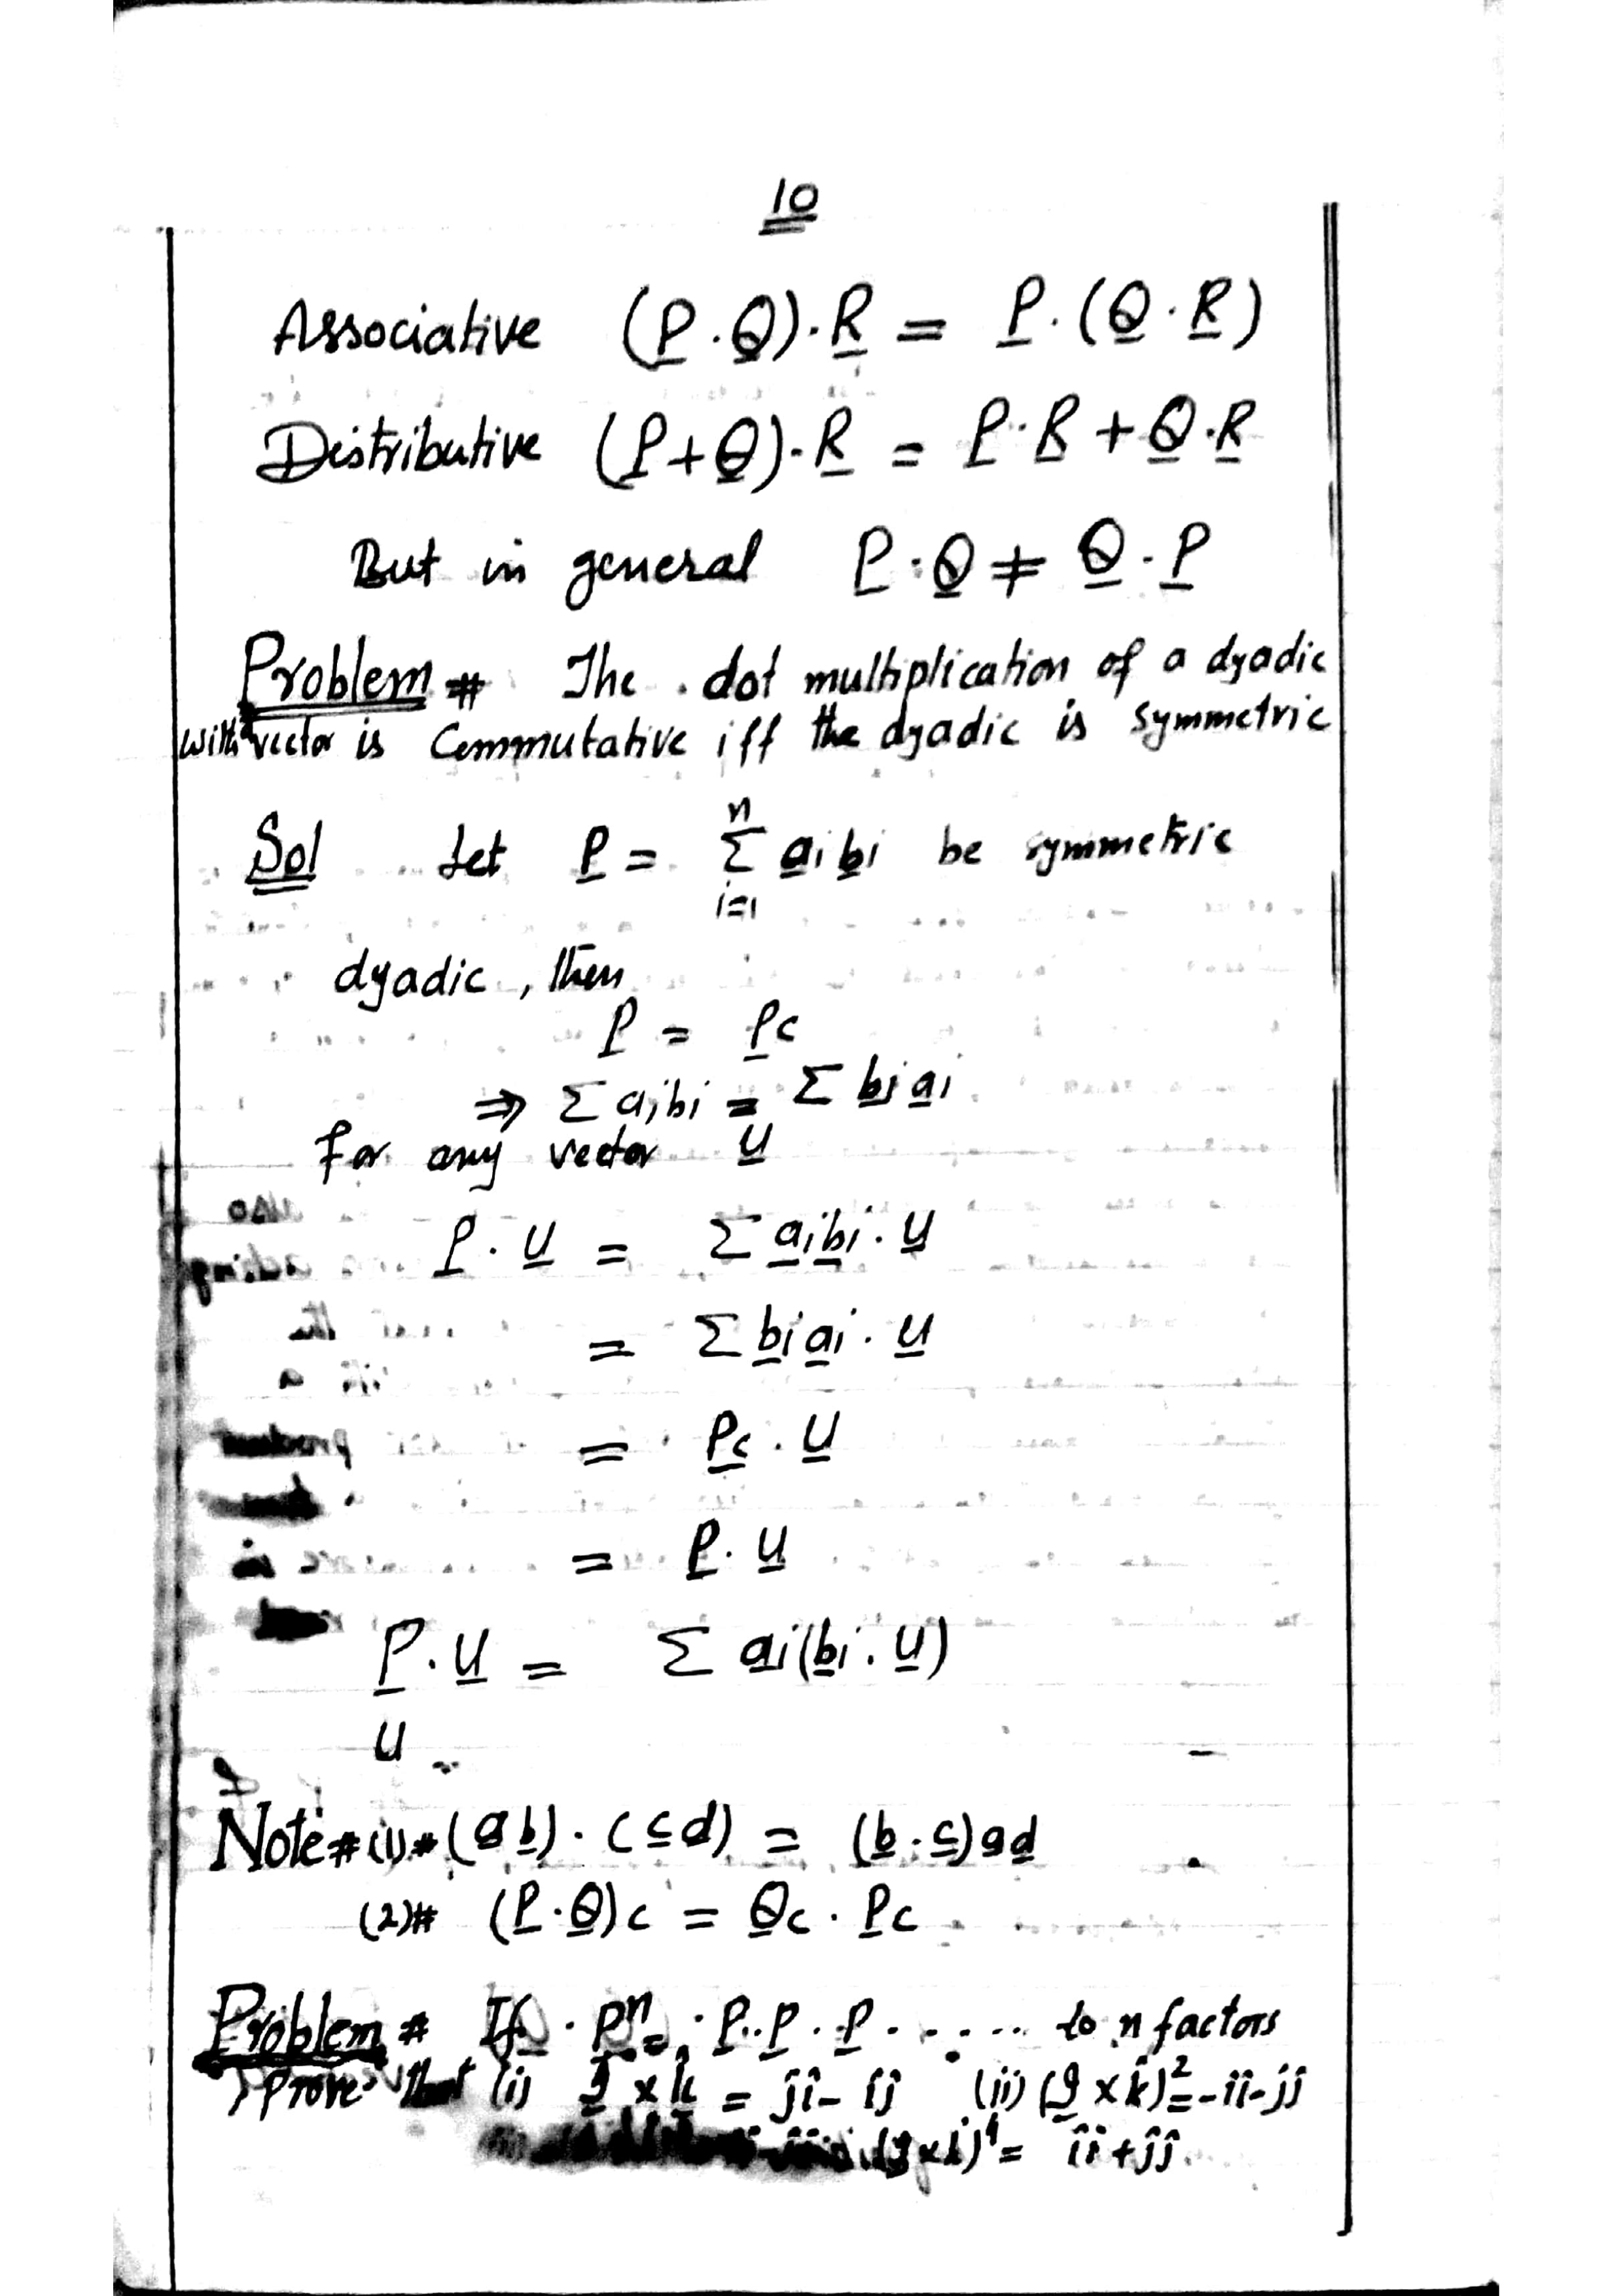 10
Associative (P.Q).R = P.(Q.R)
Distributive (P+Q).R = P.R + Q.R
But in general P.Q ≠ Q.P
Problem # The dot multiplication of a dyadic
with vector is Commutative iff the dyadic is symmetric
Sol Let P = Σ aibi be symmetric
n
i=1
dyadic, then
P = Pc
⇒ Σ aibi = Σ biai
For any vector u
P.u = Σ aibi.u
= Σ biai.u
= Pc.u
= P.u
P.u = Σ ai(bi.u)
u
Note # (1) # (ab).(cd) = (b.c)ad
(2)# (P.Q)c = Qc.Pc
Problem # If P^n = P.P.P..... to n factors
Prove that (i) I × k̂ = ĵî - îĵ (ii) (I × k̂)² = -îî-ĵĵ
(I×k)⁴ = îî+ĵĵ.